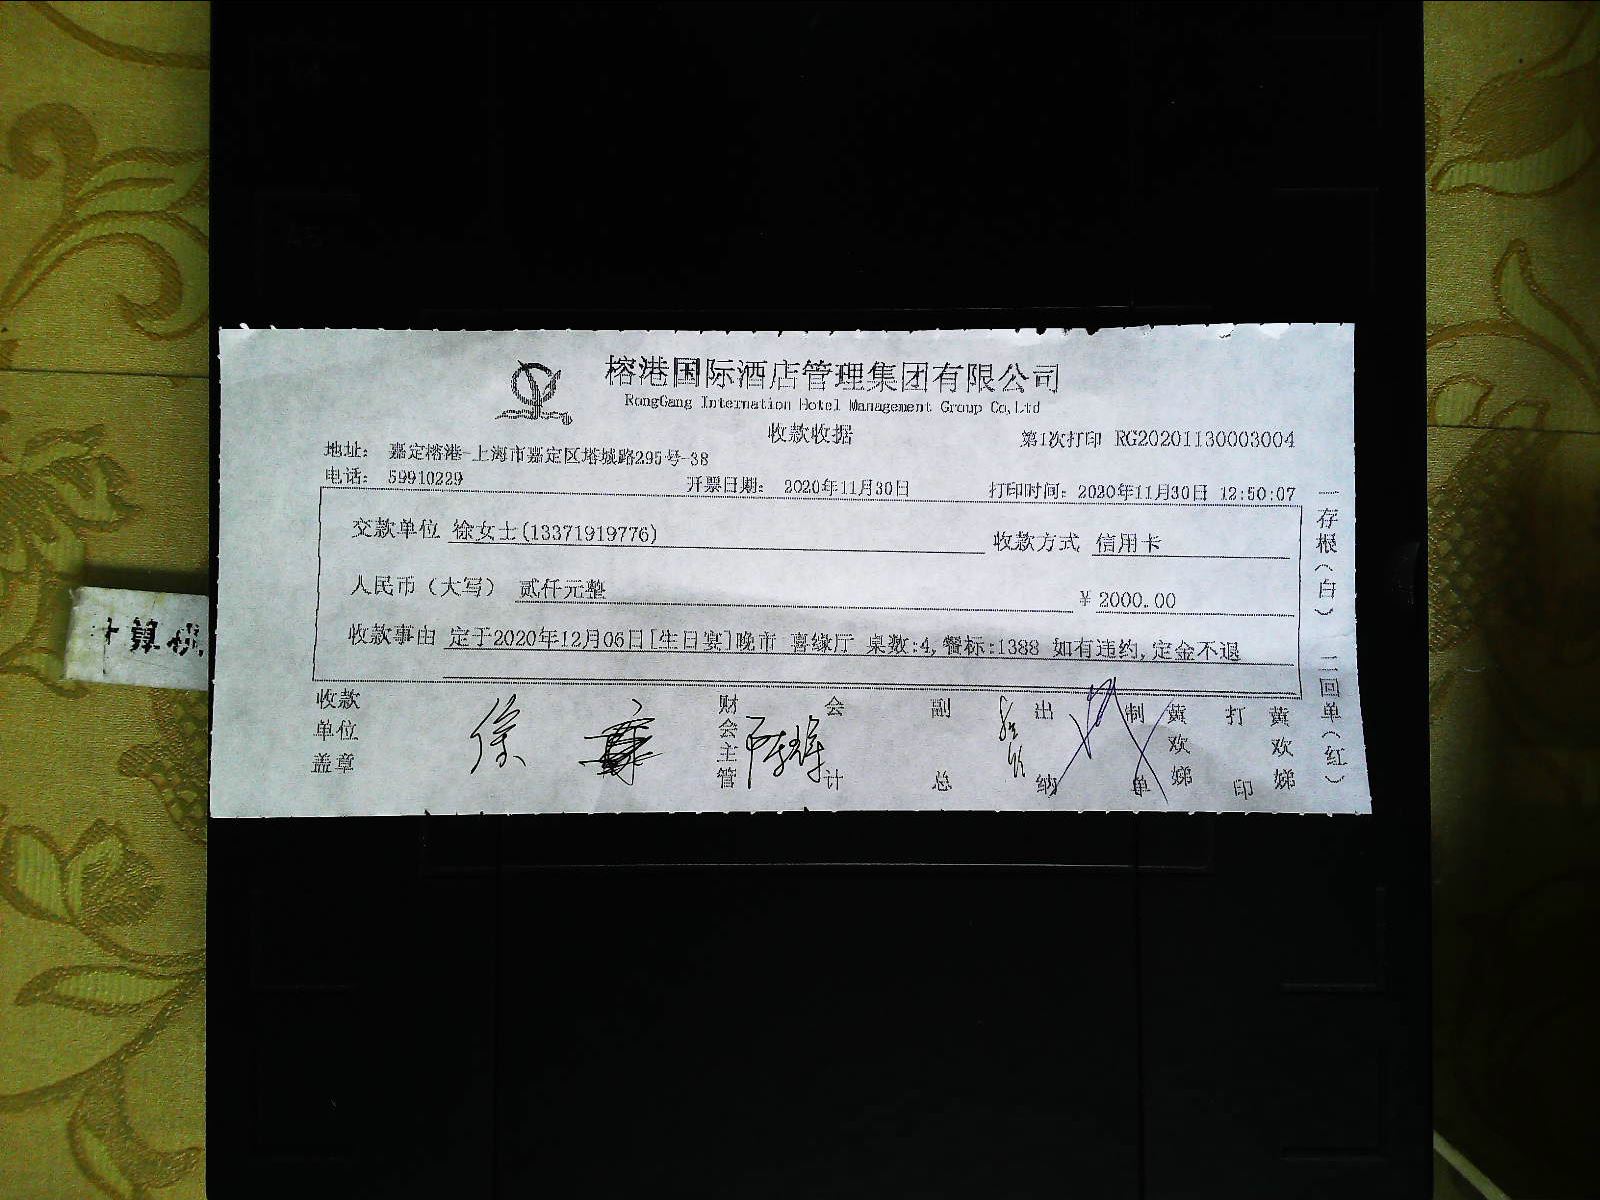 榕港国际酒店管理集团有限公司
RongGang Internation Hotel Management Group Co,Ltd
收款收据
第1次打印 RG20201130003004
地址: 嘉定榕港-上海市嘉定区塔城路295号-38
电话: 59910229
开票日期: 2020年11月30日
打印时间: 2020年11月30日 12:50:07
交款单位 徐女士(13371919776)
收款方式 信用卡
人民币(大写) 贰仟元整
¥ 2000.00
收款事由 定于2020年12月06日[生日宴]晚市 喜缘厅 桌数:4,餐标:1388 如有违约,定金不退
收款单位盖章
徐
财会主管
会计
副总
出纳
制单 黄欢娣
打印 黄欢娣
一存根(白) 二回单(红)